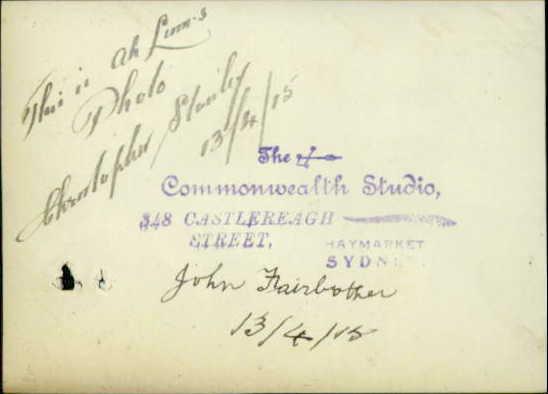 This is Ah Lum's
Photo
Christopher Stanley
13/4/15
The
Commonwealth Studio,
348 CASTLEREAGH
STREET,
HAYMARKET
SYDN
John Fairbother
13/4/15